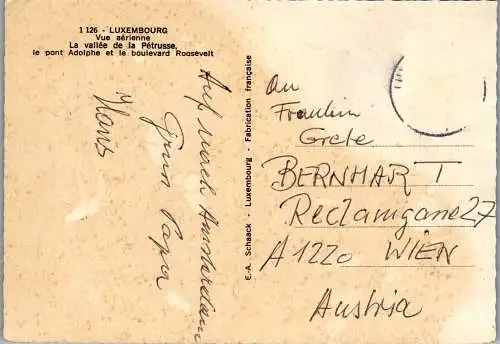 1 126 - LUXEMBOURG
Vue aérienne
La vallée de la Pétrusse,
le pont Adolphe et le boulevard Roosevelt
Auf nach Amsterdam
Gruss Papa
Hans
E.-A. Schaack - Luxembourg - Fabrication française
An
Fräulein
Grete
BERNHART
Reclamgasse 27
A 1220 WIEN
Austria